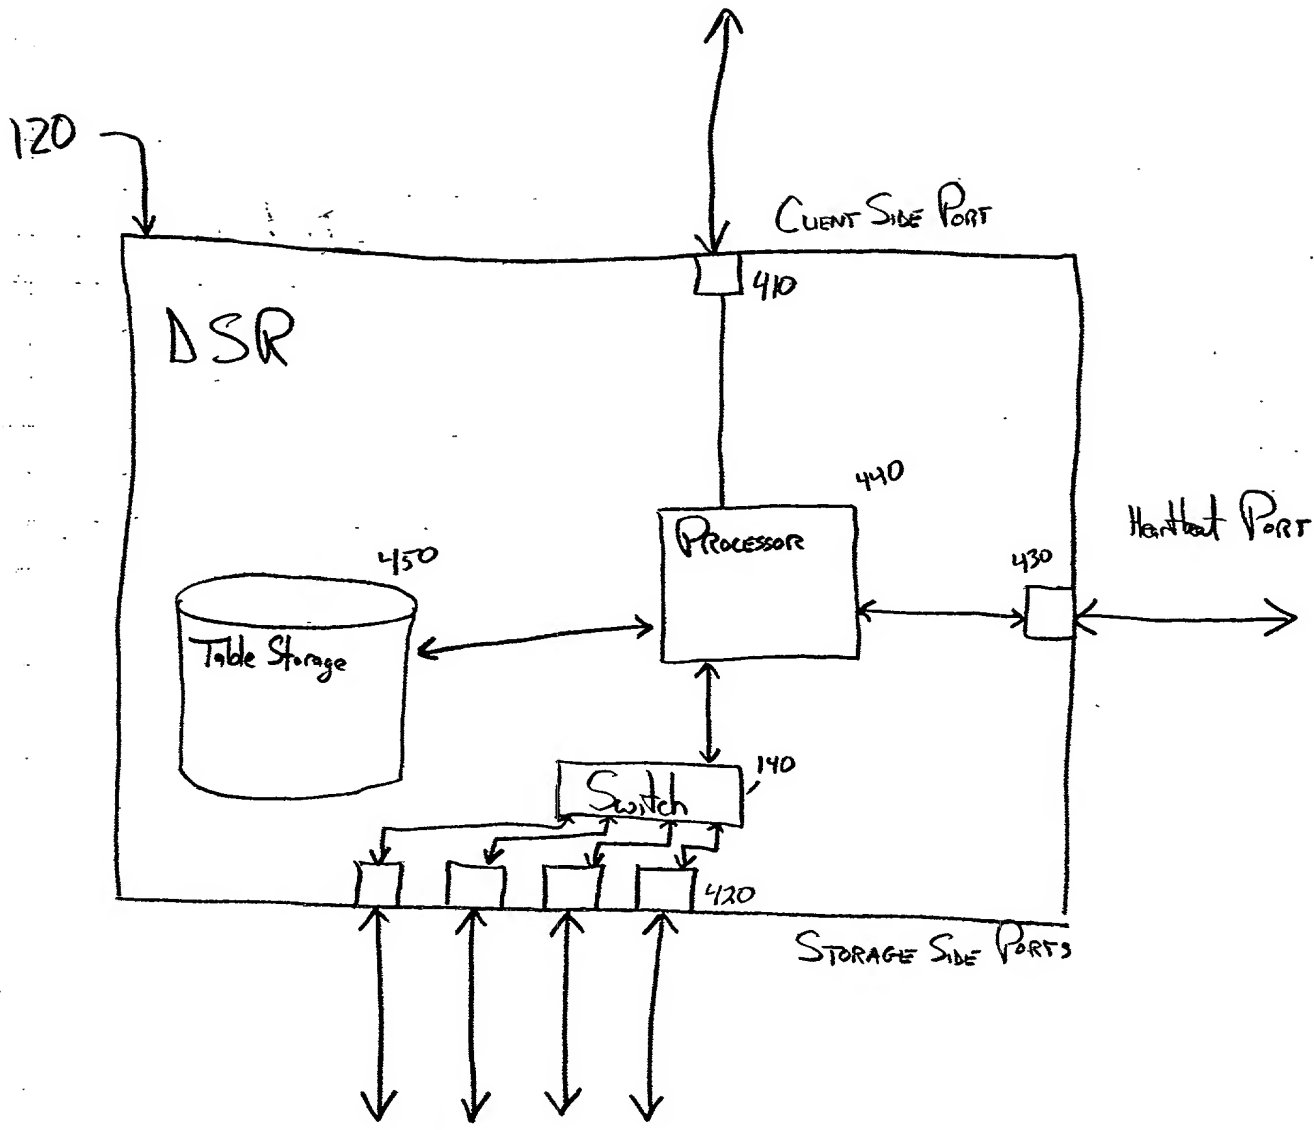 120
CLIENT SIDE PORT
410
DSR
440
PROCESSOR
HeartBeat PORT
430
450
Table Storage
140
Switch
420
STORAGE SIDE PORTS